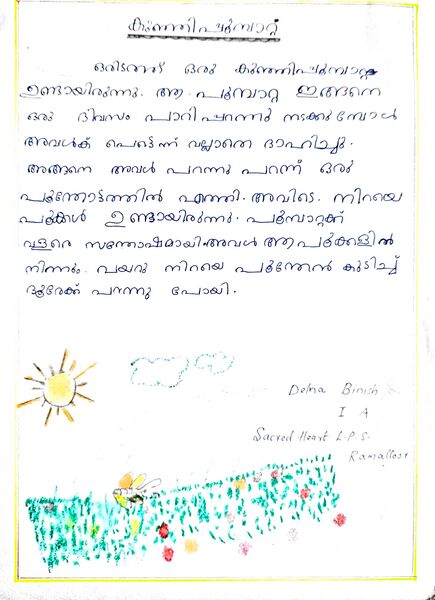 കുഞ്ഞിപ്പൂമ്പാറ്റ
ഒരിടത്ത് ഒരു കുഞ്ഞിപ്പൂമ്പാറ്റ
ഉണ്ടായിരുന്നു. ആ പൂമ്പാറ്റ ഇങ്ങനെ
ഒരു ദിവസം പാറിപ്പറന്നു നടക്കുമ്പോൾ
അവൾക് പെട്ടന്ന് വല്ലാതെ ദാഹിച്ചു.
അങ്ങനെ അവൾ പറന്നു പറന്ന് ഒരു
പൂന്തോട്ടത്തിൽ എത്തി. അവിടെ നിറയെ
പൂക്കൾ ഉണ്ടായിരുന്നു. പൂമ്പാറ്റക്ക്
വളരെ സന്തോഷമായി. അവൾ ആ പൂക്കളിൽ
നിന്നും വയറു നിറയെ പൂന്തേൻ കുടിച്ച്
ദൂരേക്ക് പറന്നു പോയി.
Delna Binish
I A
Sacred Heart L.P.S.
Ramalloor